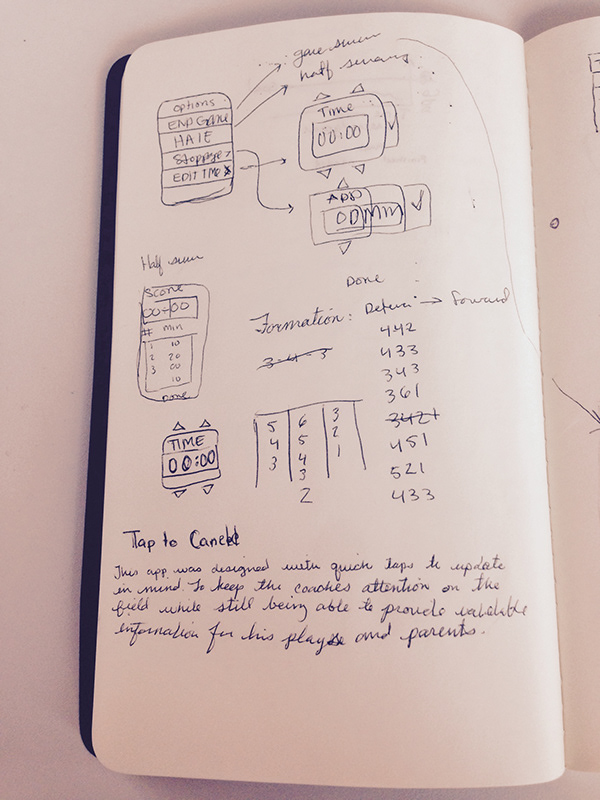 game summ
half summary
options
END Game
HALF
Stoppage >
EDIT TIME
Time
00:00
ADD
00 MM
Half summ
SCORE
00-00
# min
1 10
2 20
3 00
10
DONE
TIME
00:00
Done
Formation: → Forward
3-4-3
442
433
343
361
3421
451
521
433
5 6 3
4 5 2
3 4 1
3
2
Tap to Cancel
This app was designed with quick taps to update
in mind. To keep the coaches attention on the
field while still being able to provide valuable
information for his players and parents.